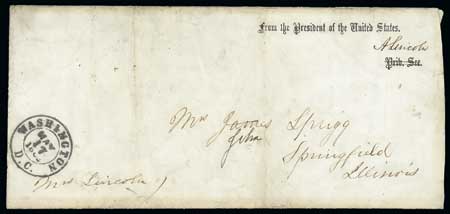 From the President of the United States.
A Lincoln
Priv. Sec.
Mrs James Sprigg
John
Springfield
Illinois
WASHINGTON
MAY
17
D.C.
Mrs Lincoln